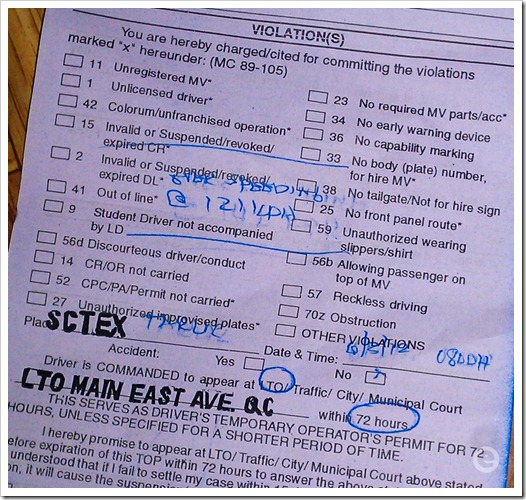 VIOLATION(S)
You are hereby charged/cited for committing the violations
marked "x" hereunder: (MC 89-105)
11 Unregistered MV*
1 Unlicensed driver*
42 Colorum/unfranchised operation*
15 Invalid or Suspended/revoked/
expired CR*
2 Invalid or Suspended/revoked/
expired DL*
41 Out of line* @ 121 KPH
9 Student Driver not accompanied
by LD
56d Discourteous driver/conduct
14 CR/OR not carried
52 CPC/PA/Permit not carried*
27 Unauthorized improvised plates*
23 No required MV parts/acc*
34 No early warning device
36 No capability marking
33 No body (plate) number,
for hire MV*
38 No tailgate/Not for hire sign
25 No front panel route*
59 Unauthorized wearing
slippers/shirt
56b Allowing passenger on
top of MV
57 Reckless driving
70z Obstruction
OTHER VIOLATIONS
SCTEX TARLAC
Date & Time: 0800H
Accident: Yes No
Driver is COMMANDED to appear at LTO/ Traffic/ City/ Municipal Court
LTO MAIN EAST AVE. QC within 72 hours
THIS SERVES AS DRIVER'S TEMPORARY OPERATOR'S PERMIT FOR 72
HOURS, UNLESS SPECIFIED FOR A SHORTER PERIOD OF TIME.
I hereby promise to appear at LTO/ Traffic/ City/ Municipal Court above stated
before expiration of this TOP within 72 hours to answer the above
understood that if I fail to settle my case within 15
on, it will cause the